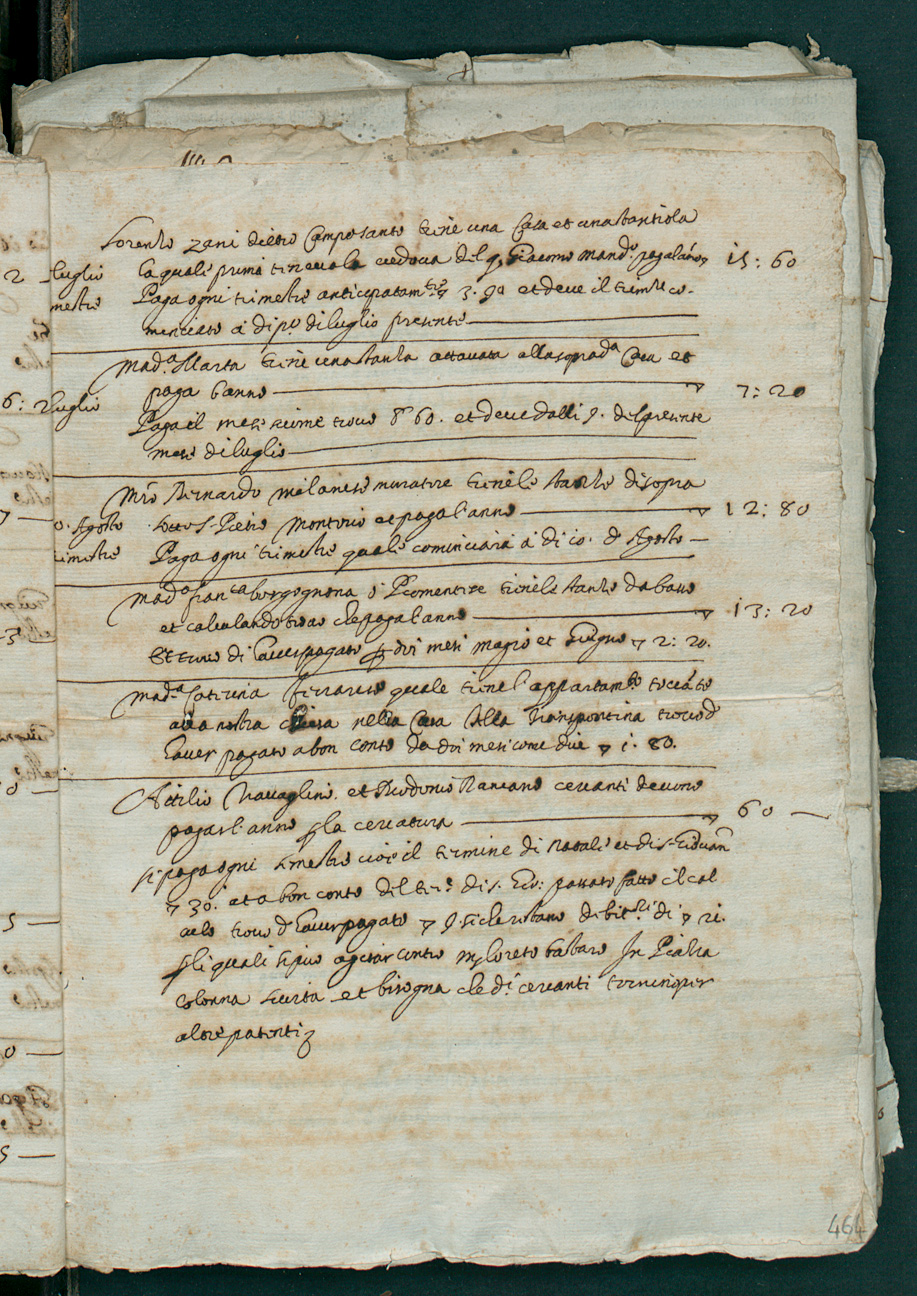 Lorenzo Zani dietro Camposanto tiene una Casa et una stantiola
luglio la quale prima teneva la vedova del q. Giacomo Mand.o paga l'anno ▽ 15: 60
mestre Paga ogni trimestre anticipatam.te ▽ 3. 90 et deve il trim.re co-
menciato a di p.o di luglio presente
Mad.a Marta tiene una stanza attacata alla soprad.a Casa et
paga l'anno ▽ 7: 20
luglio Paga il mese come trovo 60. et deve dalli 9. del presente
mese di luglio
M.ro Bernardo milanese muratore tiene le stanze di sopra
Agosto sotto S. Pietro Montorio et paga l'anno ▽ 12: 80
trimestre Paga ogni trimestre quale cominciarà a di 10. d'Agosto
Mad.a Fran.ca borgognona o Piemontese tiene le stanze da basso
et calculando trovo che paga l'anno ▽ 13: 20
Et trovo di haver pagato p doi mesi magio et Giugno ▽ 2: 20.
Mad.a Caterina ferrarese quale tiene l'appartam.to
alla nostra chiesa nella Casa della Transpontina trovo d'
haver pagato a bon conto da doi mesi come dice ▽ 1. 80.
Attilio Travaglino et cercanti devono
pagar l'anno p la cercatura ▽ 60 —
si paga ogni semestre cioè il termine di Natale et di S. Giovan
▽ 30. et a bon conto del ter.e di S. Gio: passato fatto il cal
culo trovo d'haver pagato ▽ 9. si che restano debit.ri di ▽ 21.
p li quali si può agitar contro m. Loreto barbaro In Piazza
Colonna sicurtà et bisogna che d.i cercanti
altre patenti
464